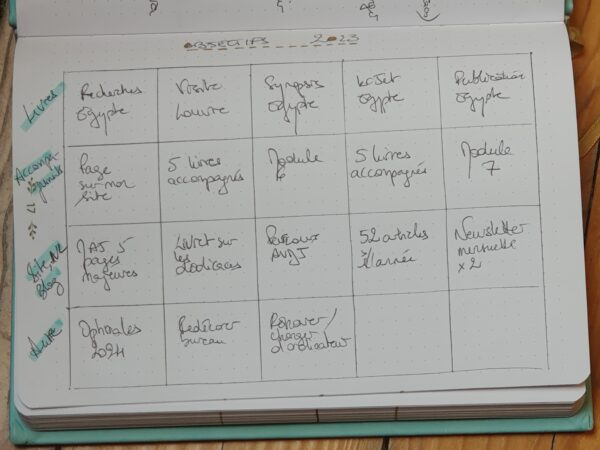 OBJECTIFS 2023
Livres
Recherches
Égypte
Visite
Louvre
Synopsis
Égypte
1er Jet
Égypte
Publication
Égypte
Accom
pagnements
Page
sur mon
site
5 livres
accompagnés
Module
5 livres
accompagnés
Module
7
Site, NL
Blog
MAJ 5
pages
majeures
Livret sur
les
dédicaces
Parcours
52 articles
l'année
Newsletter
mensuelle
x2
Autre
2024
Redécorer
bureau
Rénover/
changer
d'ordinateur